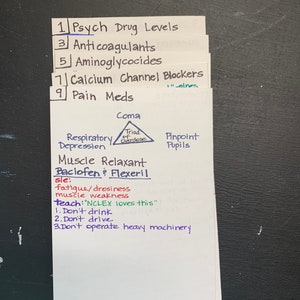 1 Psych Drug Levels
3 Anticoagulants
5 Aminoglycocides
7 Calcium Channel Blockers
9 Pain Meds
Coma
Triad
of
Respiratory
Depression
Pinpoint
Pupils
Muscle Relaxant
Baclofen & Flexeril
s/e:
fatigue/drosiness
muscle weakness
teach: "NCLEX loves this"
1. Don't drink
2. Don't drive
3. Don't operate heavy machinery